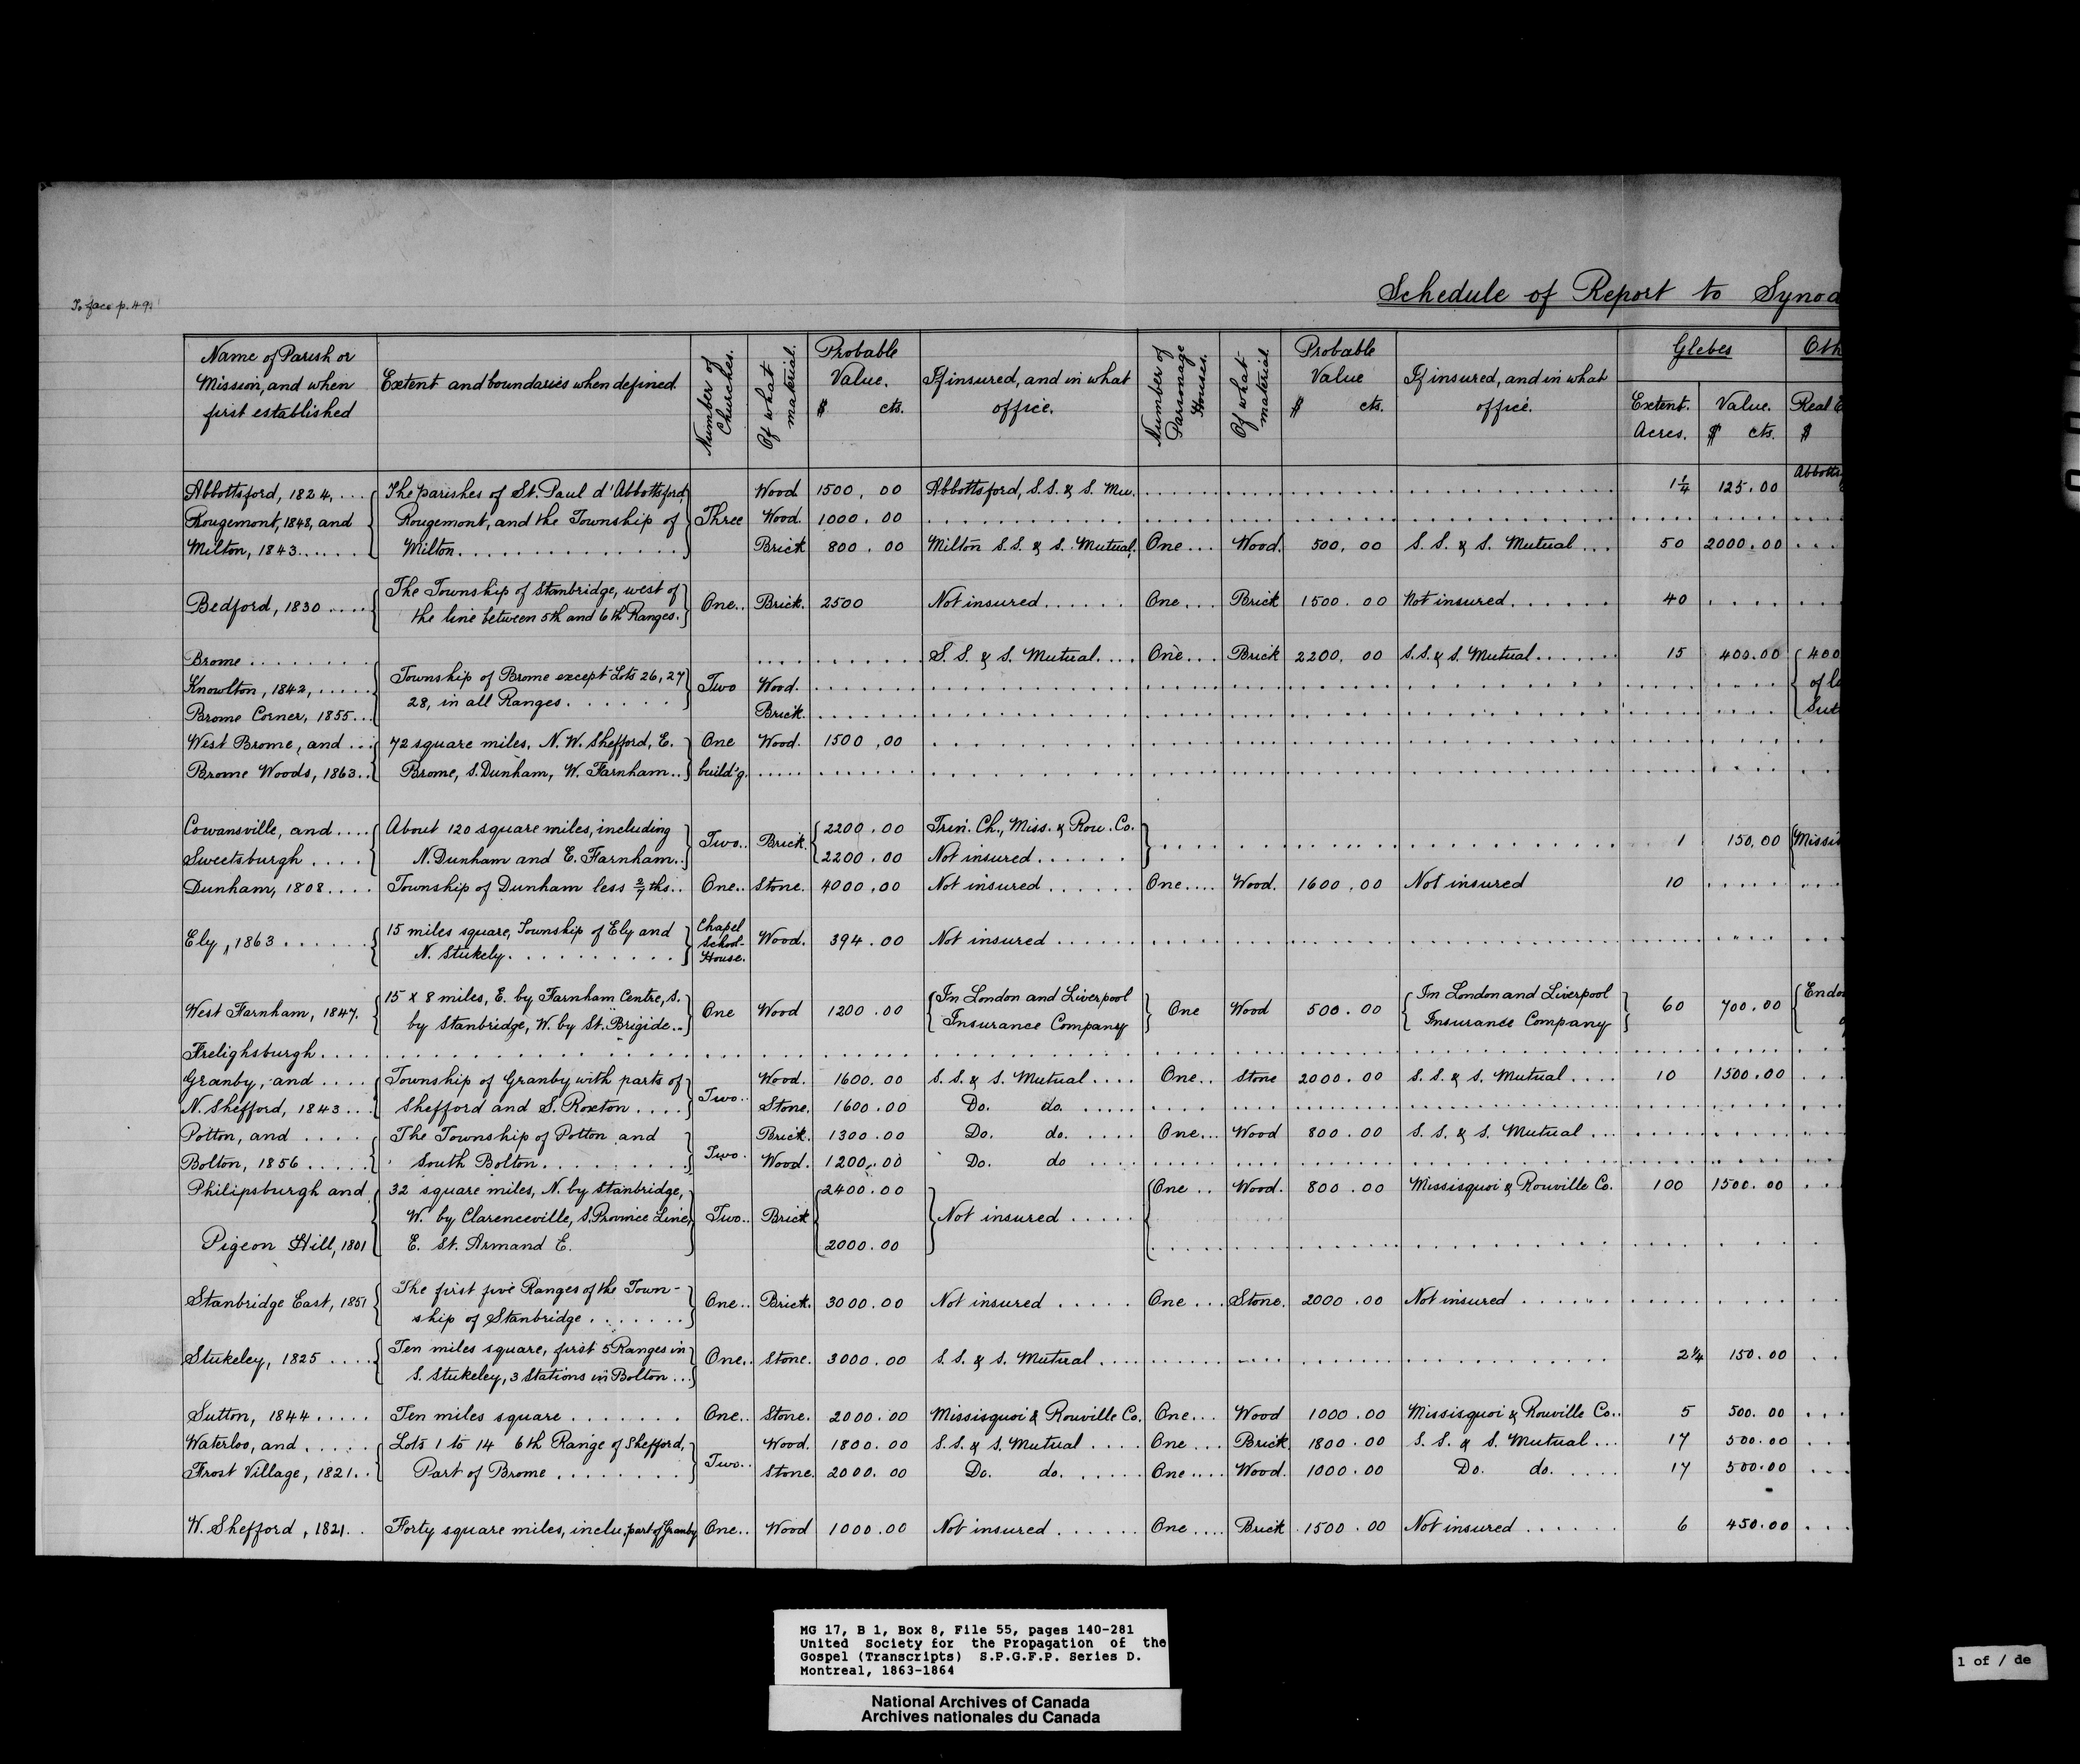 To face p. 49.
Schedule of Report to Synod
Name of Parish or Mission, and when first established | Extent and boundaries when defined. | Number of Churches. | Of what material. | Probable Value. $ cts. | If insured, and in what office. | Number of Parsonage Houses. | Of what material. | Probable Value $ cts. | If insured, and in what office. | Glebes Extent. Acres. | Value. $ cts. | Oth Real E $
Abbottsford, 1824, .... The parishes of St. Paul d'Abbottsford, Wood. 1500.00 Abbottsford, S.S. & S. Mu. 1 1/4 125.00 Abbotts
Rougemont, 1848, and Rougemont, and the Township of Three Wood. 1000.00
Milton, 1843...... Milton. Brick 800.00 Milton S.S. & S. Mutual, One... Wood. 500.00 S.S. & S. Mutual ... 50 2000.00
Bedford, 1830 .... The Township of Stanbridge, west of the line between 5th and 6th Ranges. One.. Brick. 2500 Not insured...... One... Brick 1500.00 Not insured....... 40
Brome ........ S.S. & S. Mutual.... One... Brick 2200.00 S.S. & S. Mutual...... 15 400.00 400
Knowlton, 1842, ..... Township of Brome except Lots 26, 27 Two Wood.
Brome Corner, 1855... 28, in all Ranges. Brick. Sut
West Brome, and ... 72 square miles, N.W. Shefford, E. One Wood. 1500.00
Brome Woods, 1863.. Brome, S. Dunham, W. Farnham.. build'g.
Cowansville, and .... About 120 square miles, including Two.. Brick. 2200.00 Trin. Ch., Miss. & Rou. Co. 1 150.00 Missis
Sweetsburgh .... N. Dunham and E. Farnham.. 2200.00 Not insured......
Dunham, 1808.... Township of Dunham less 2/7ths.. One.. Stone. 4000.00 Not insured...... One.... Wood. 1600.00 Not insured 10
Ely, 1863 ...... 15 miles square, Township of Ely and N. Stukely. Chapel School-House. Wood. 394.00 Not insured
West Farnham, 1847. 15 x 8 miles, E. by Farnham Centre, S. by Stanbridge, W. by St. Brigide... One Wood 1200.00 In London and Liverpool Insurance Company One Wood 500.00 In London and Liverpool Insurance Company 60 700.00 Endo
Frelighsburgh....
Granby, and .... Township of Granby with parts of Two.. Wood. 1600.00 S.S. & S. Mutual .... One.. Stone 2000.00 S.S. & S. Mutual .... 10 1500.00
N. Shefford, 1843... Shefford and S. Roxton .... Stone. 1600.00 Do. do.
Potton, and .... The Township of Potton and Two. Brick. 1300.00 Do. do. One... Wood 800.00 S.S. & S. Mutual ...
Bolton, 1856 ..... South Bolton. Wood. 1200.00 Do. do
Philipsburgh and 32 square miles, N. by Stanbridge, 2400.00 One .. Wood. 800.00 Missisquoi & Rouville Co. 100 1500.00
W. by Clarenceville, S. Province Line, Two.. Brick Not insured .....
Pigeon Hill, 1801 E. St. Armand E. 2000.00
Stanbridge East, 1851 The first five Ranges of the Town-ship of Stanbridge. One.. Brick. 3000.00 Not insured ..... One ... Stone. 2000.00 Not insured ......
Stukeley, 1825 .... Ten miles square, first 5 Ranges in S. Stukeley, 3 Stations in Bolton ... One.. Stone. 3000.00 S.S. & S. Mutual .... 2 1/4 150.00
Sutton, 1844 ..... Ten miles square ....... One.. Stone. 2000.00 Missisquoi & Rouville Co. One... Wood 1000.00 Missisquoi & Rouville Co.. 5 500.00
Waterloo, and ..... Lots 1 to 14 6th Range of Shefford, Two.. Wood. 1800.00 S.S. & S. Mutual .... One ... Brick. 1800.00 S.S. & S. Mutual ... 17 500.00
Frost Village, 1821.. Part of Brome ........ Stone. 2000.00 Do. do. One .... Wood. 1000.00 Do. do. 17 500.00
W. Shefford, 1821.. Forty square miles, inclu. part of Granby One.. Wood 1000.00 Not insured ...... One .... Brick 1500.00 Not insured ...... 6 450.00
MG 17, B 1, Box 8, File 55, pages 140-281
United Society for the Propagation of the
Gospel (Transcripts) S.P.G.F.P. Series D.
Montreal, 1863-1864
National Archives of Canada
Archives nationales du Canada
1 of / de